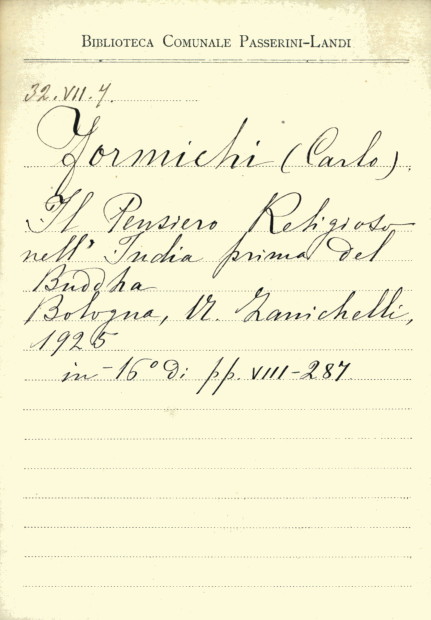 BIBLIOTECA COMUNALE PASSERINI-LANDI
32.VII.7.
Formichi (Carlo)
Il Pensiero Religioso
nell' India prima del
Buddha
Bologna, N. Zanichelli,
1925
in-16° di pp. VIII-287